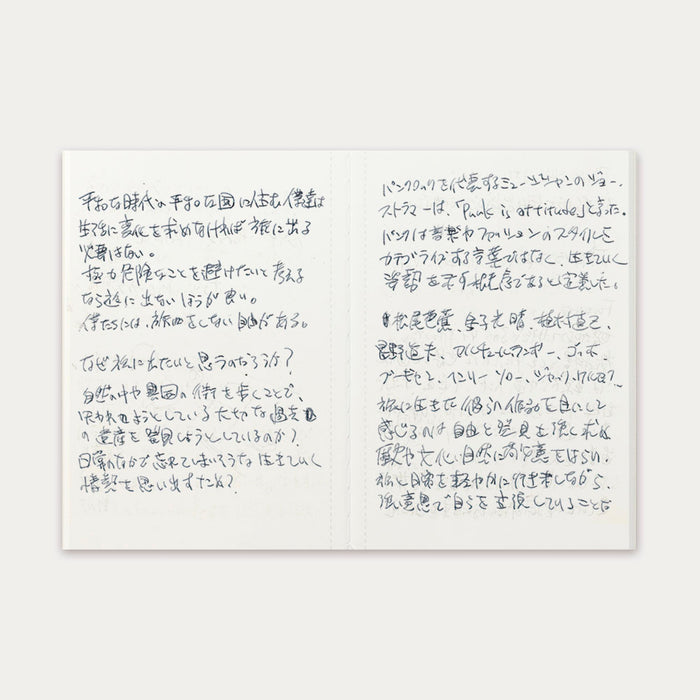 平和な時代の平和な国に住む僕達は
生活に変化を求めなければ旅に出る
必要はない。
極力危険なことを避けたいと考える
なら旅に出ないほうが良い。
僕たちには、旅をしない自由がある。
なぜ旅に出たいと思うのだろうか?
自然の中や異国の街を歩くことで、
失われようとしている大切な過去
の遺産を発見しようとしているのか?
日常のなかで忘れてしまいそうな生きていく
情熱を思い出すため?
パンクロックを代表するミュージシャンのジョー・
ストラマーは、「Punk is attitude」と言った。
パンクは音楽やファッションのスタイルを
カテゴライズする言葉ではなく、生きていく
姿勢を示す言葉であると定義した。
松尾芭蕉、金子光晴、植村直己、
星野道夫、アルチュール・ランボー、ゴッホ、
ゴーギャン、ヘンリー・ソロー、ジャック・ケルアック、
旅に生きた彼らの作品を目にして
感じるのは自由と発見を強く求め
歴史や文化、自然に敬意をはらい、
旅と日常を軽やかに行き来しながら、
強い意思で自らを主張していることだ